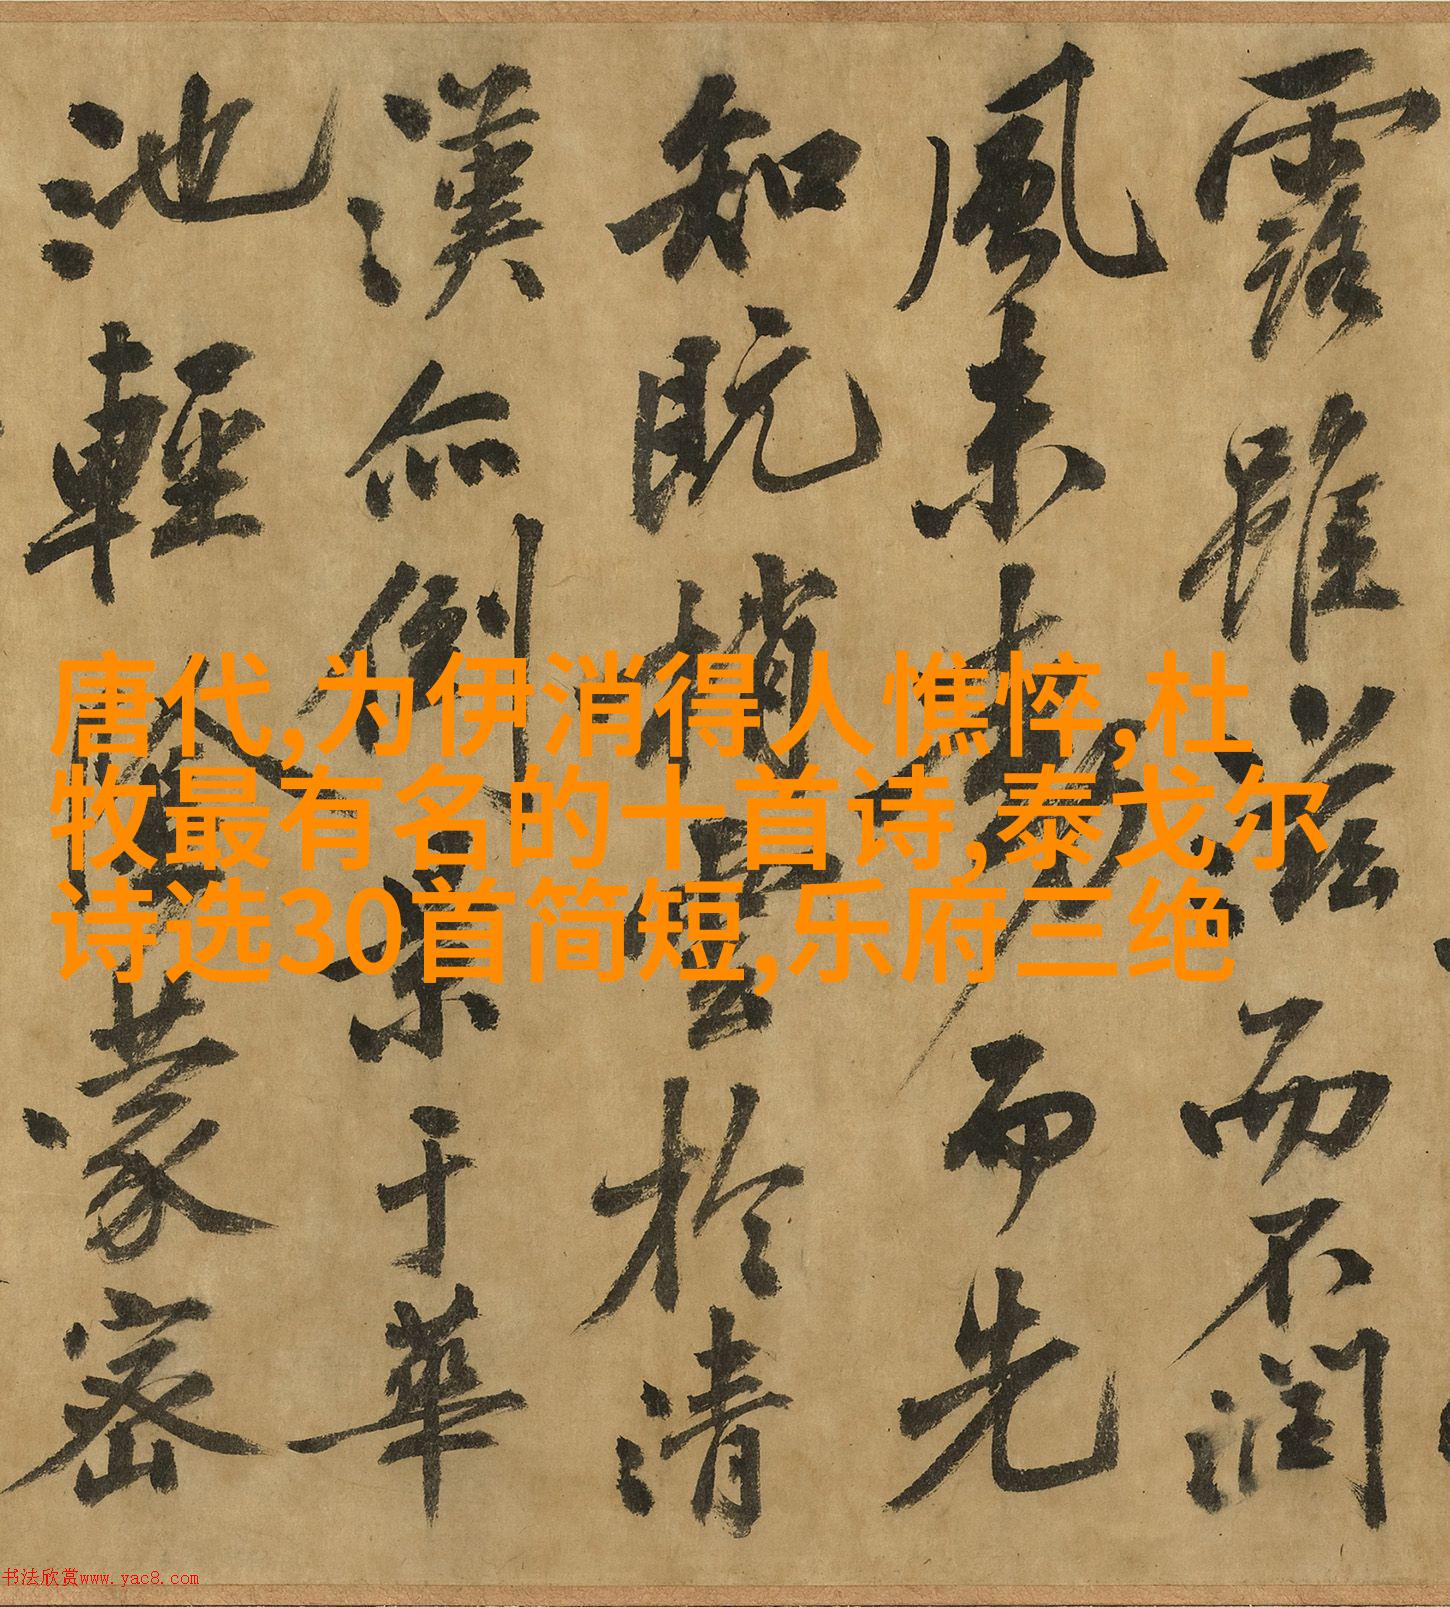 露雖滋而不潤
風未動而先
知既梢雲於清
漢亦倒景于華
池輕陰蒙密
唐代,为伊消得人憔悴,杜
牧最有名的十首诗,泰戈尔
诗选30首简短,乐府三绝
书法欣赏www.yac8.com